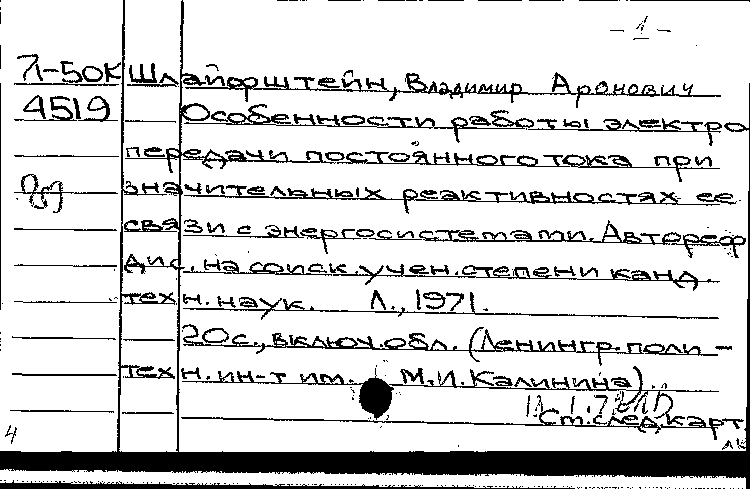 - 1 -
71-50к Шлайфштейн, Владимир Аронович
4519 Особенности работы электро
передачи постоянного тока при
значительных реактивностях ее
связи с энергосистемами. Автореф
дис. на соиск. учен. степени канд.
техн. наук. Л., 1971.
20с., включ. обл. (Ленингр. поли-
техн. ин-т им. М.И. Калинина).
См. след. карт.
4